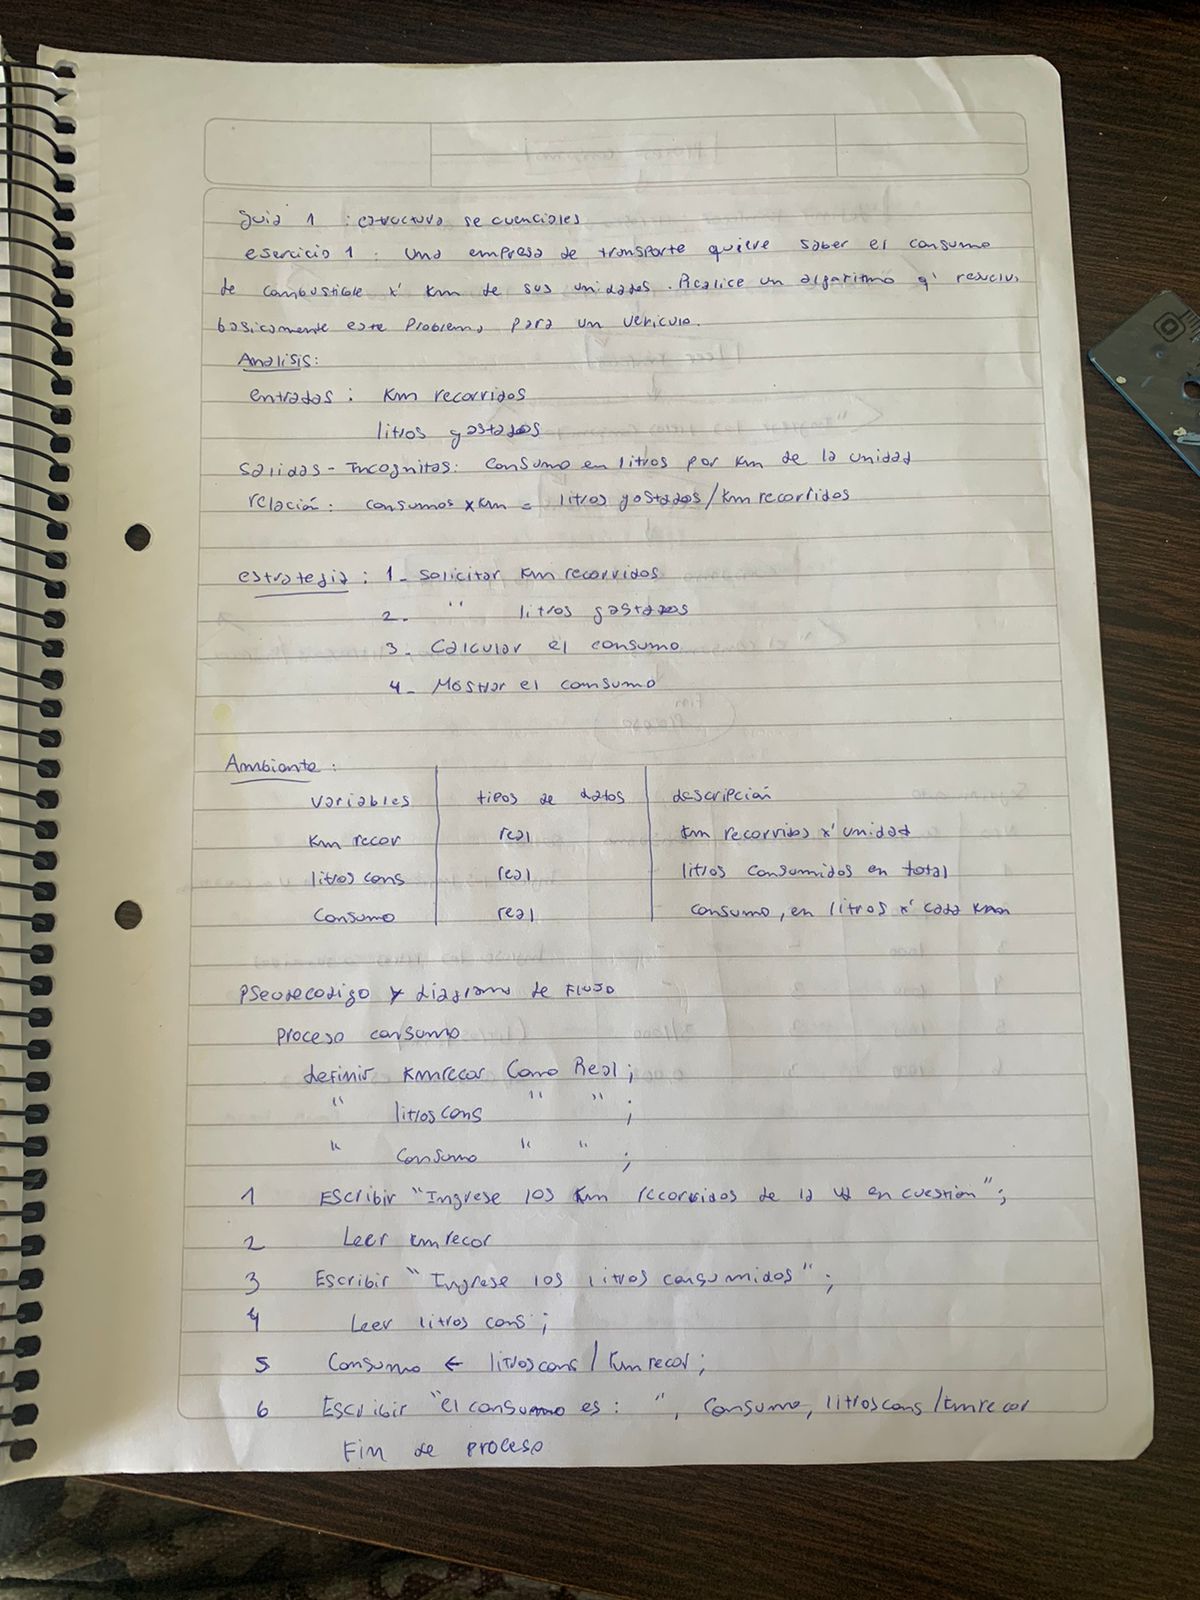 guia 1 : estructura se cuenciales
esercicio 1 : una empresa de transporte quiere saber el consumo
de combustible x' Km de sus unidades. Realice un algoritmo q' resuelva
basicamente este problema para un vehiculo.
Analisis:
entradas : Km recorridos
litros gastados
salidas - Incognitas: consumo en litros por Km de la unidad
relación: consumos x Km = litros gastados/Km recorridos
estrategia : 1- solicitar Km recorridos
2- " litros gastados
3- Calcular el consumo
4- Mostrar el consumo
Ambiente :
variables tipos de datos descripción
Km recor real Km recorridos x' unidad
litros cons real litros consumidos en total
consumo real consumo, en litros x' cada Km
Pseudecodigo y diagrama de Flujo
Proceso consumo
definir Kmrecor Como Real ;
" litroscons " " ;
" consumo " " ;
1 Escribir "Ingrese los Km recorridos de la ud en cuestion" ;
2 Leer Kmrecor
3 Escribir "Ingrese los litros consumidos" ;
4 Leer litros cons ;
5 Consumo ← litroscons / Kmrecor ;
6 Escribir "el consumo es : ", Consumo, litroscons/Kmrecor
Fin de proceso